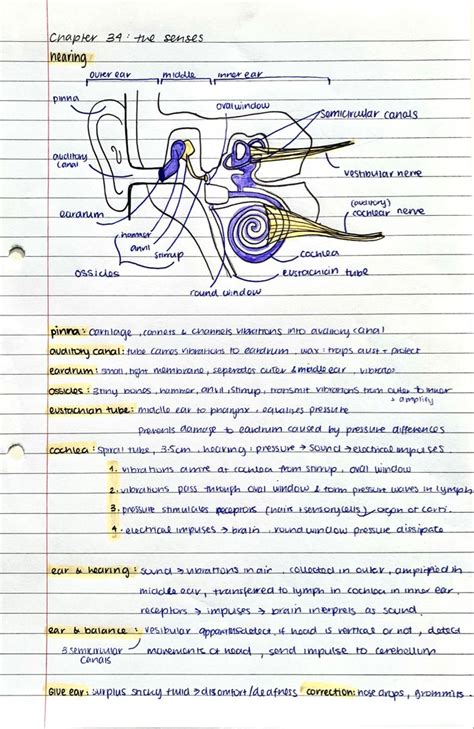 Chapter 34: the senses
hearing
outer ear middle inner ear
pinna
oval window
semicircular canals
auditory canal
vestibular nerve
(auditory)
cochlear nerve
eardrum
hammer
anvil
stirrup
cochlea
ossicles
eustachian tube
round window
pinna: cartilage, connets & channels vibrations into auditory canal
auditory canal: tube carries vibrations to eardrum, wax: traps dust + protect
eardrum: small, tight membrane, seperates outer & middle ear, vibrates
ossicles: 3 tiny bones, hammer, anvil, stirrup, transmit vibrations from outer to inner
+ amplify
eustachian tube: middle ear to pharynx, equalises pressure
prevents damage to eardrum caused by pressure differences
cochlea: spiral tube, 3.5cm, hearing, pressure → sound → electrical impulses
1. vibrations arrive at cochlea from stirrup, oval window
2. vibrations pass through oval window & form pressure waves in lymph
3. pressure stimulates receptors (hairs, sensory cells), organ of corti.
4. electrical impulses → brain, round window pressure dissipate
ear & hearing: sound → vibrations in air, collected in outer, amplified in
middle ear, transferred to lymph in cochlea in inner ear,
receptors → impulses → brain interprets as sound.
ear & balance: vesibular apparatus detect if head is vertical or not, detect
3 semicircular canals movements of head, send impulse to cerebellum
Glue ear: surplus sticky fluid → discomfort/deafness correction: nose drops, grommits.